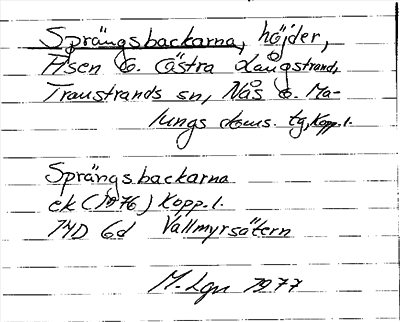 Sprängsbackarna, höjder,
Åsen o. Östra Långstrand,
Transtrands sn, Nås o. Ma-
lungs doms. tg, Kopp. l.
Sprängsbackarna
ek (1976) Kopp. l.
14D 6d Vallmyrsätern
M. Lgn 1977